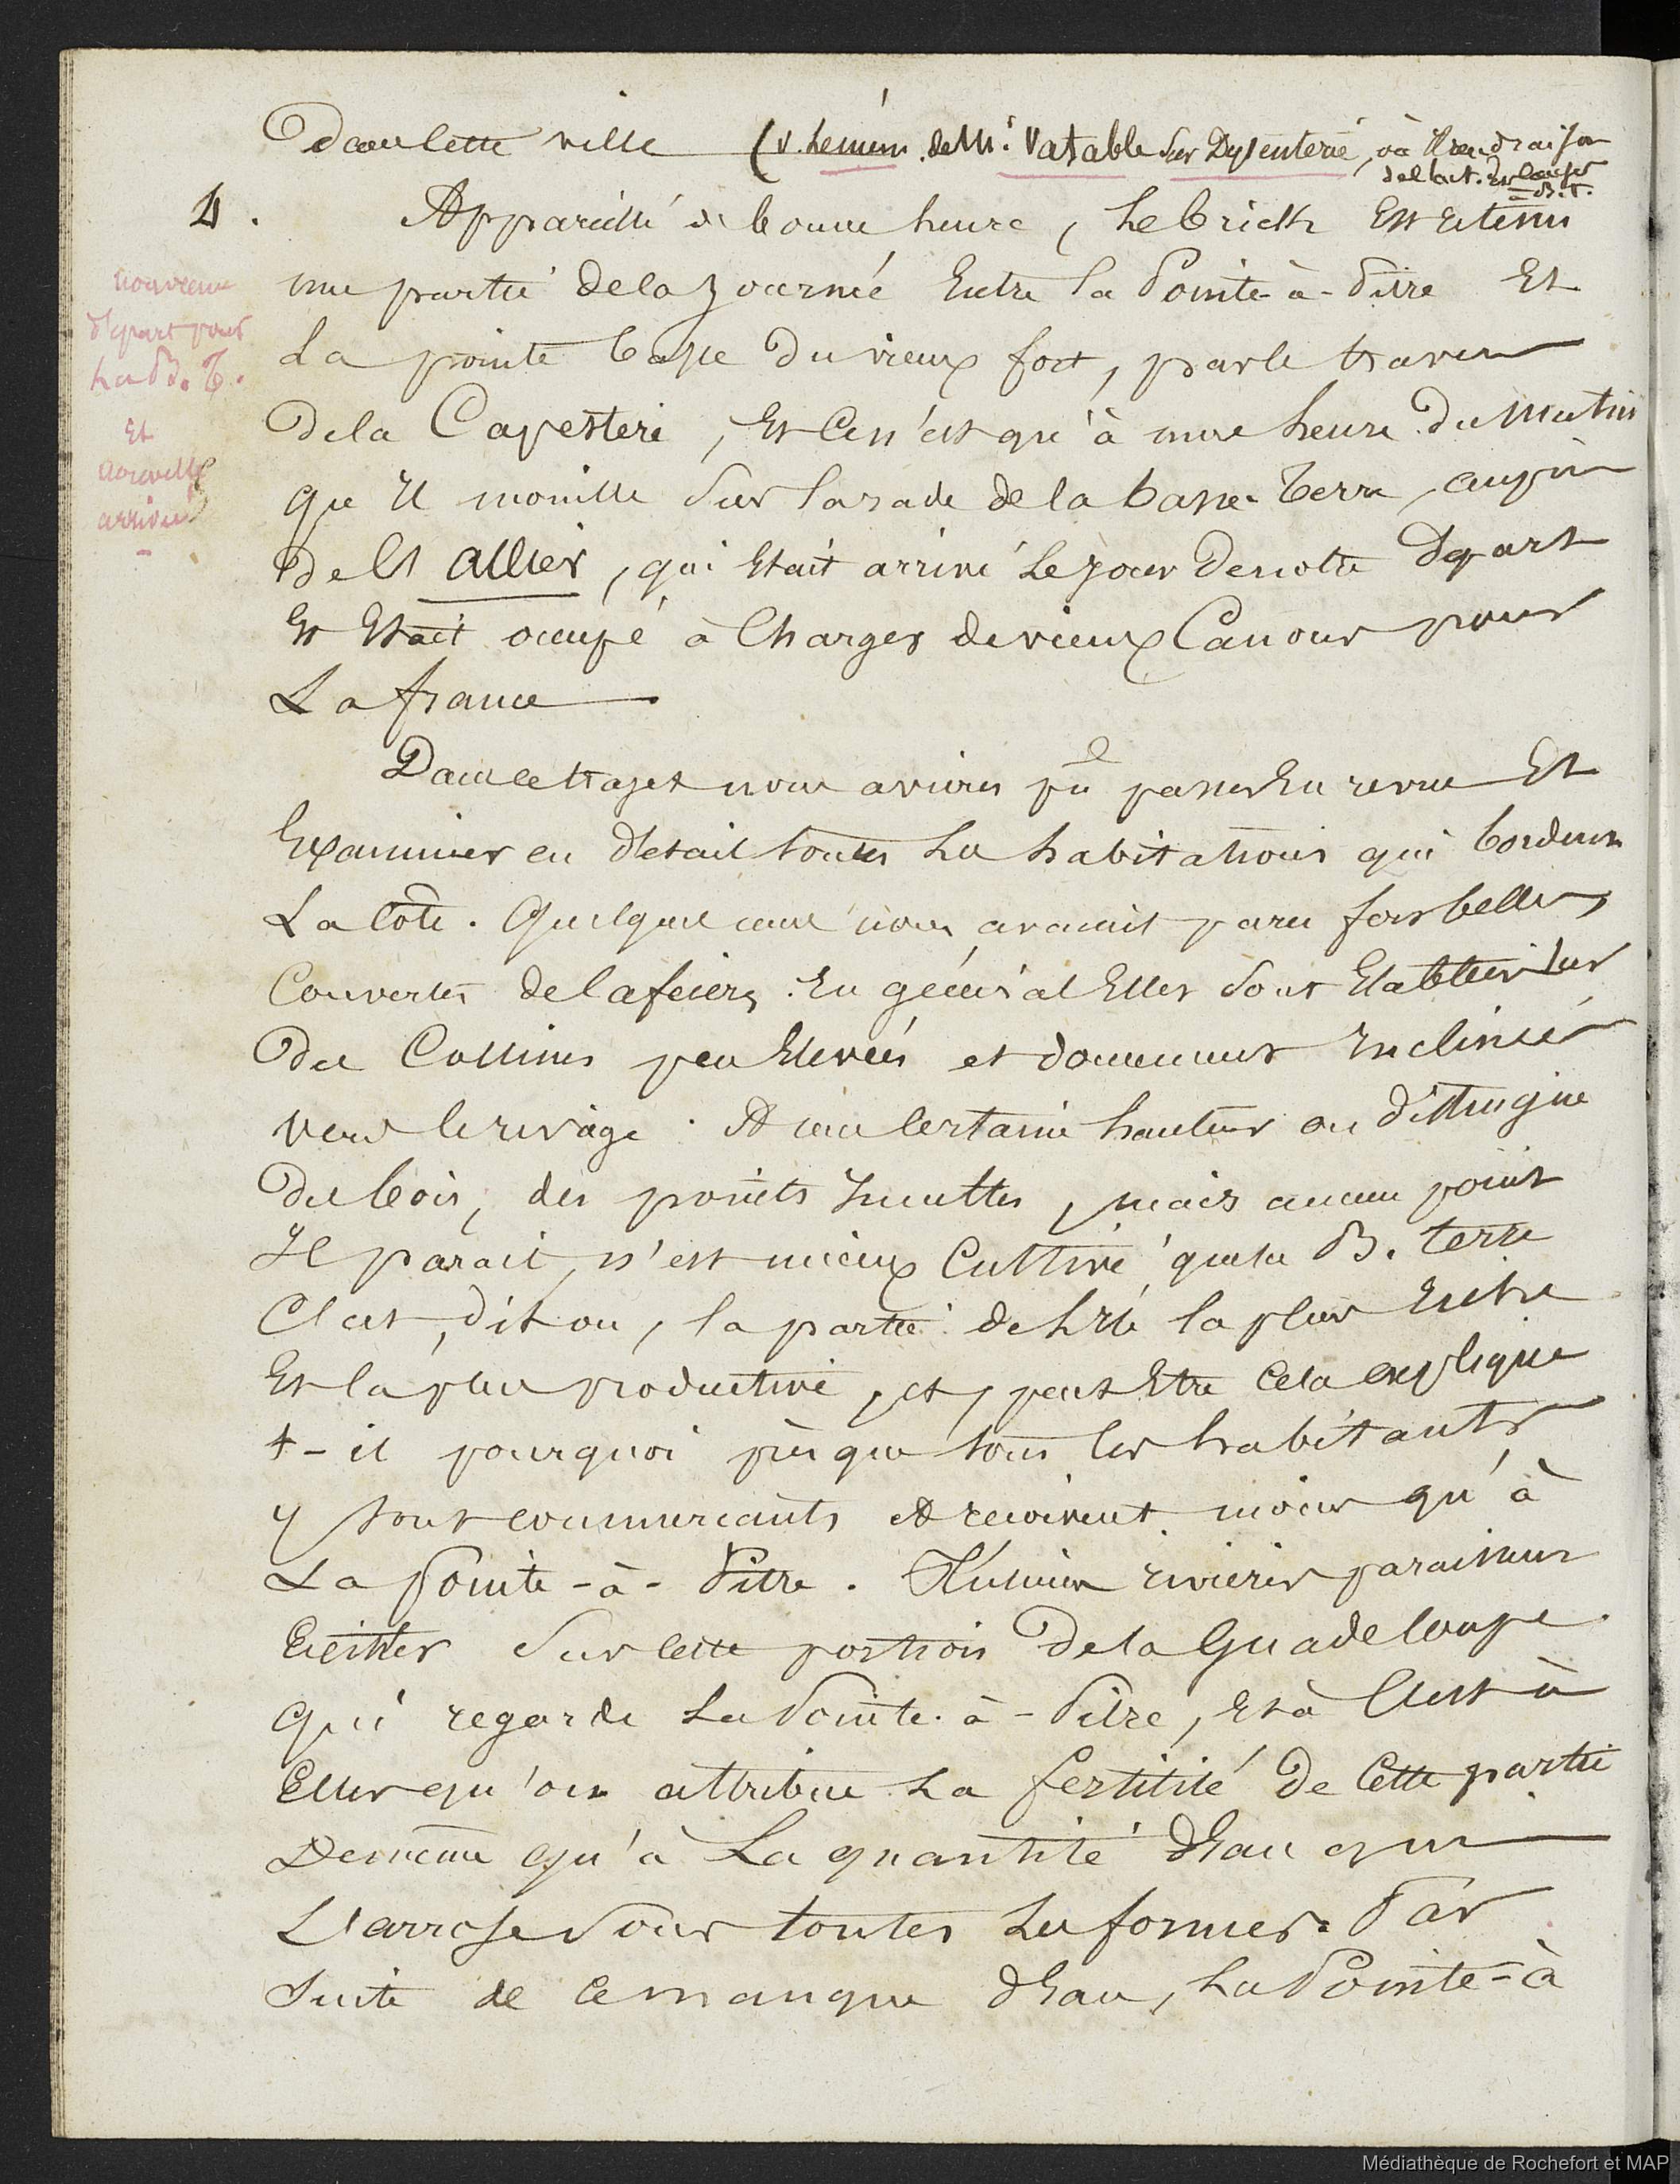 Dans cette ville (v. le mém. de Mr. Vatable sur Dysenterie, où il rend raison
de l'act. en
à B.T.
4. Appareillé de bonne heure, le brick est retenu
nouveau
départ pour
la B. T.
et
nouvelle
arrivée
une partie de la journée entre la Pointe-à-Pitre et
la pointe du vieux fort, par le travers
de la Capesterre, et ce n'est qu'à une heure du matin
qu'il mouille sur la rade de la basse-terre, auprès
de l'allier, qui était arrivé le jour de notre départ
et était occupé à charger de vieux canons pour
La france
Dans ce trajet nous avions pu passer en revue et
examiner en détail toutes les habitations qui bordent
La côte. Quelques unes nous avaient paru fort belles,
couvertes de cafeiers. En général elles sont établies sur
des collines peu élevées et doucement inclinées
vers le rivage. A une certaine hauteur on distingue
des bois, des points incultes, mais aucun point
il parait, n'est mieux cultivé que la B. terre
C'est, dit on, la partie de l'île la plus riche
et la plus productive, et, peut être cela explique
t-il pourquoi presque tous les habitants
y sont commerçants et reçoivent moins qu'à
La Pointe-à-Pitre. rivières paraissent
exister sur cette portion de la Guadeloupe
qui regarde La Pointe-à-Pitre, et à c'est à
Elles qu'on attribue la fertilité de cette partie
De même qu'à La quantité d'eau qui
L'arrose sous toutes les formes. Par
suite de ce manque d'eau, La Pointe-à
Médiathèque de Rochefort et MAP